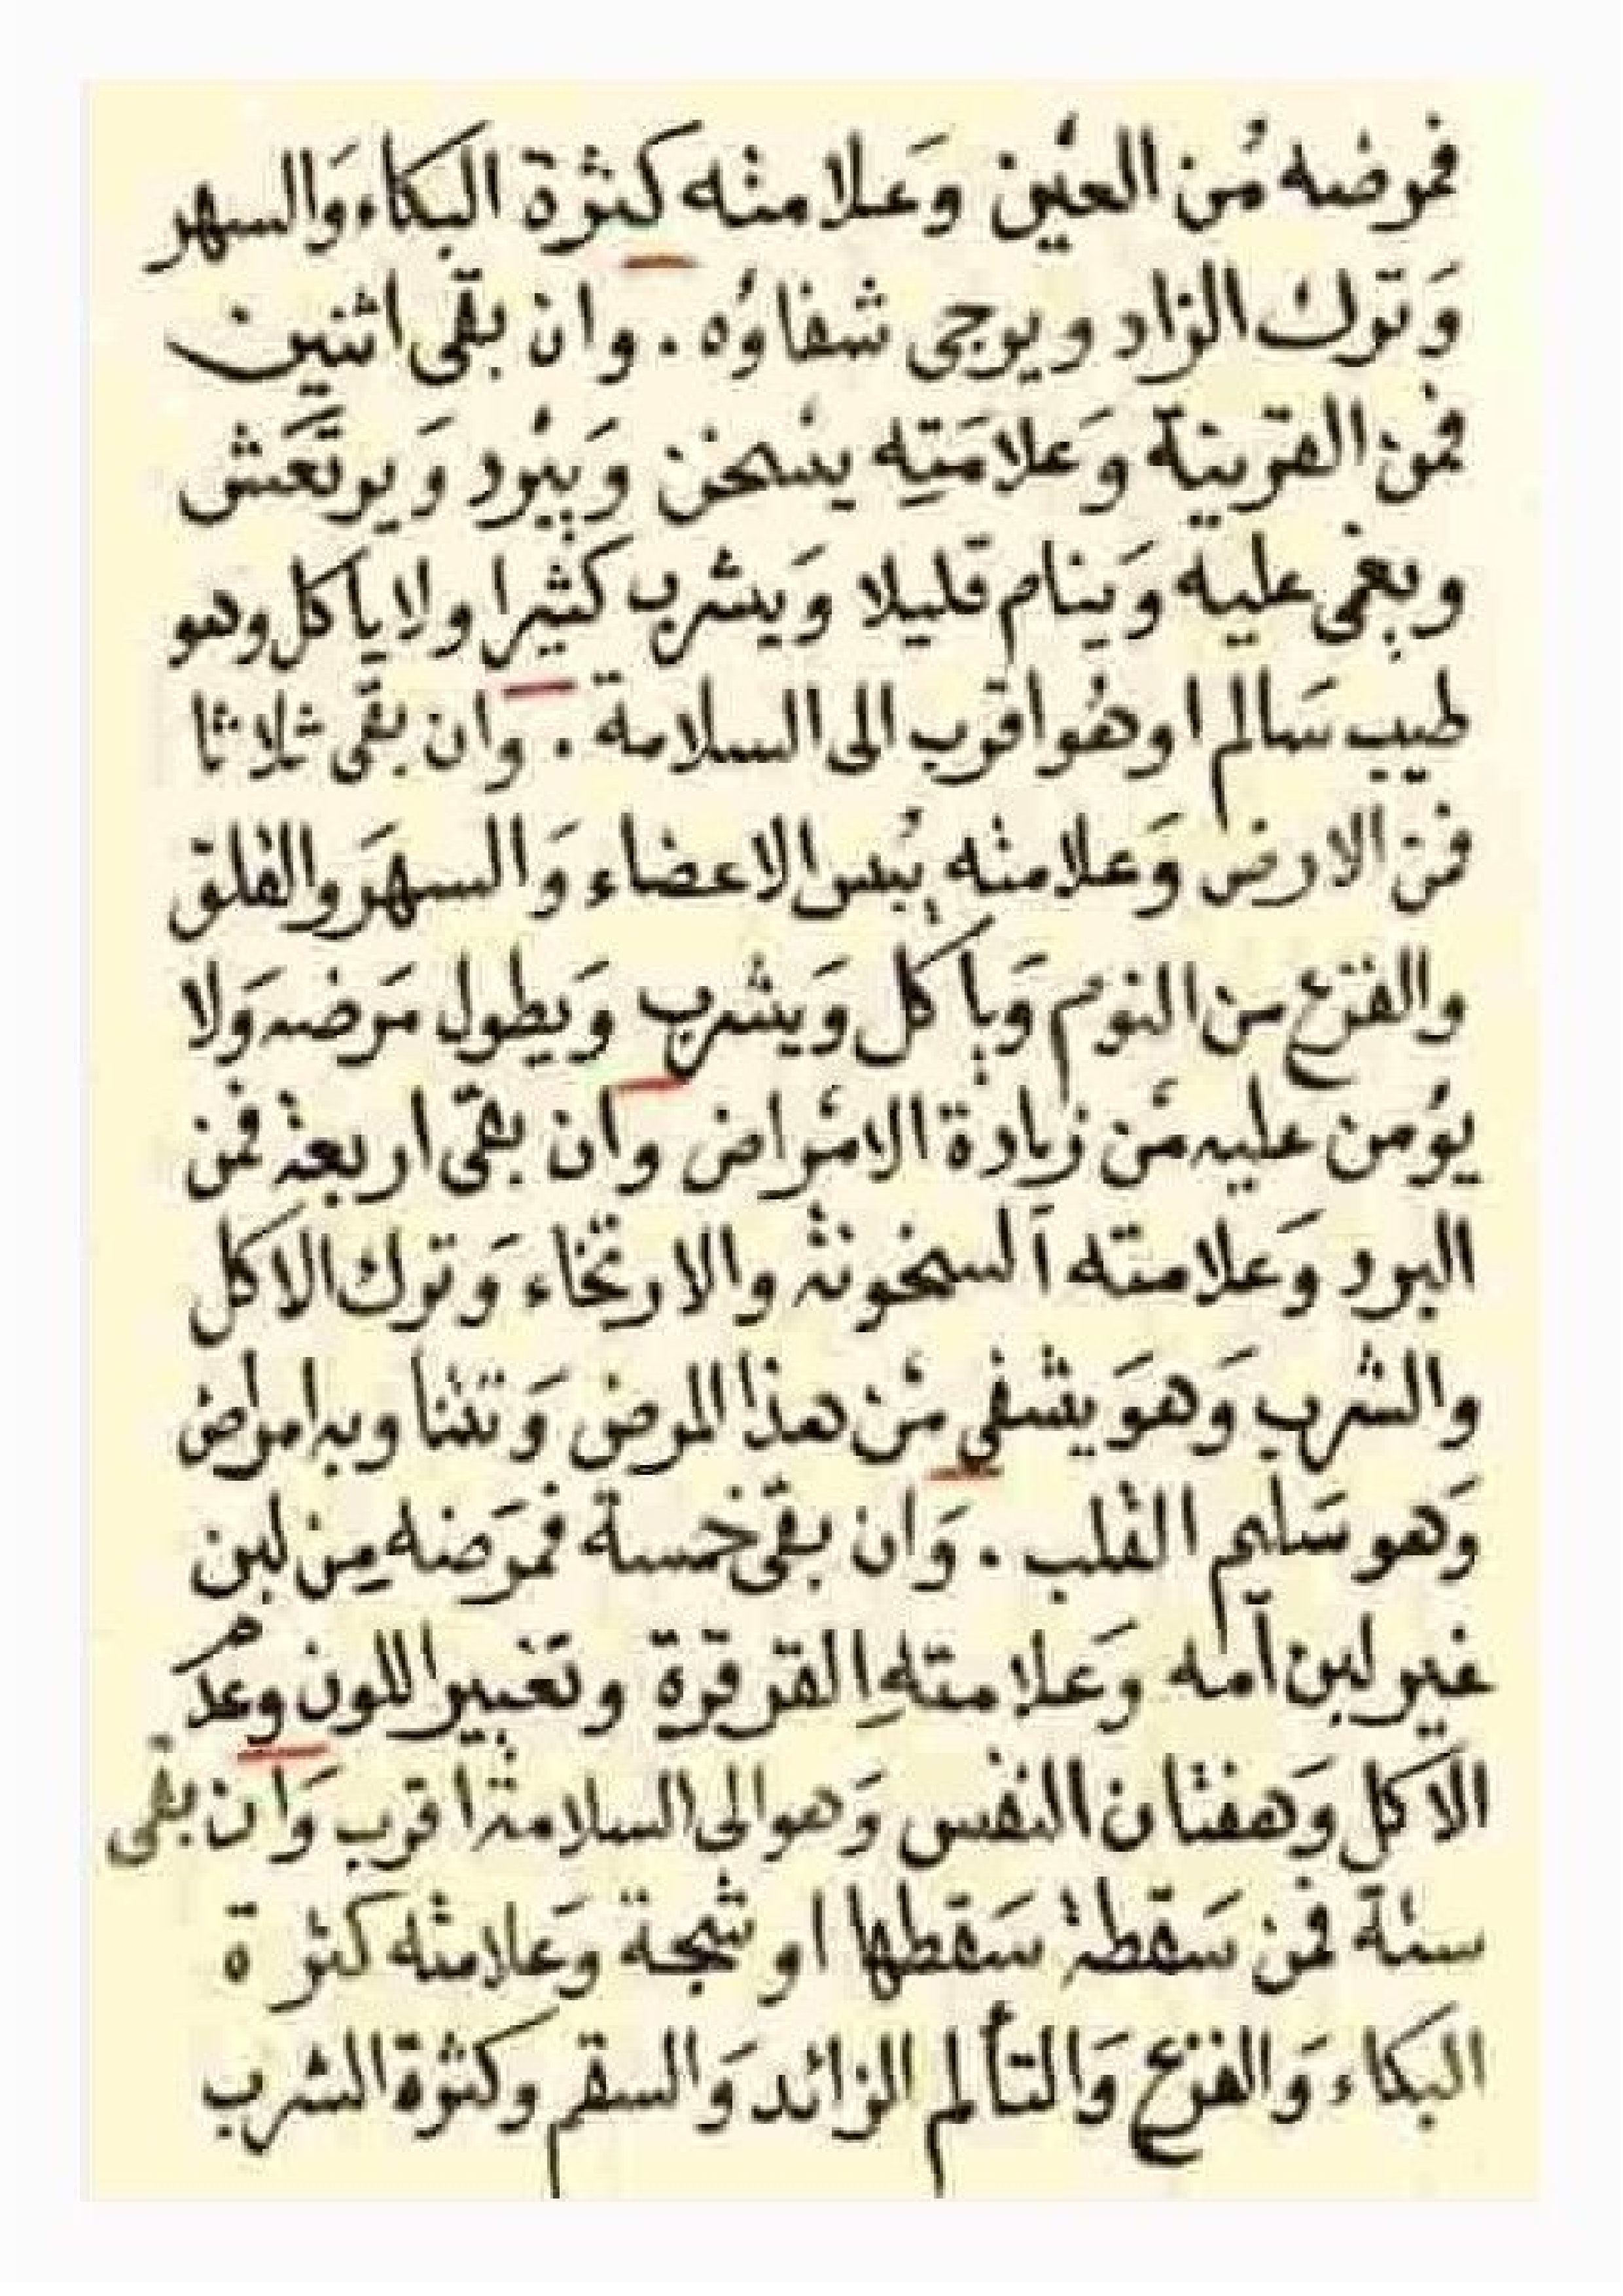 فمرضه من العين وَعلامته كثرة البكاء وَالسهر
وَترك الزاد ويرجى شفاؤه . وان بقى اثنين
فمن القرينة وَعلامَتِه يسخن وَيبرد وَيرتَعَش
ويغمى عليه وَينام قليلا وَيشرب كثيرا ولا ياكل وهو
طيب سَالم اوهُو اقرب الى السلامة . وان بقى ثلاثا
فمن الارض وَعلامته يُبس الاعضاء وَالسهَر والقلق
والفزع من النوم وَياكل وَيشرب وَيطول مَرَضه وَلا
يؤمن عليه من زيادة الامراض وان بقى اربعة فمن
البرد وَعلامته ٱلسخونة والارتخاء وَترك الاكل
والشرب وَهوَ يشفى من هذا المرض وَتتنا وبه امراض
وَهو سَليم القلب . وَان بقى خمسة فمَرَضه مِن لبن
غير لبن آمه وَعلامتهِ القرقرة وتغيير اللون وعدم
الاكل وَهفتان النفس وَهو الى السلامة اقرب وَان بقى
ستة فمن سَقطة سَقطها او شجة وَعلامته كثرة
البكاء وَالفزع وَالتألم الزائد وَالسقم وكثرة الشرب